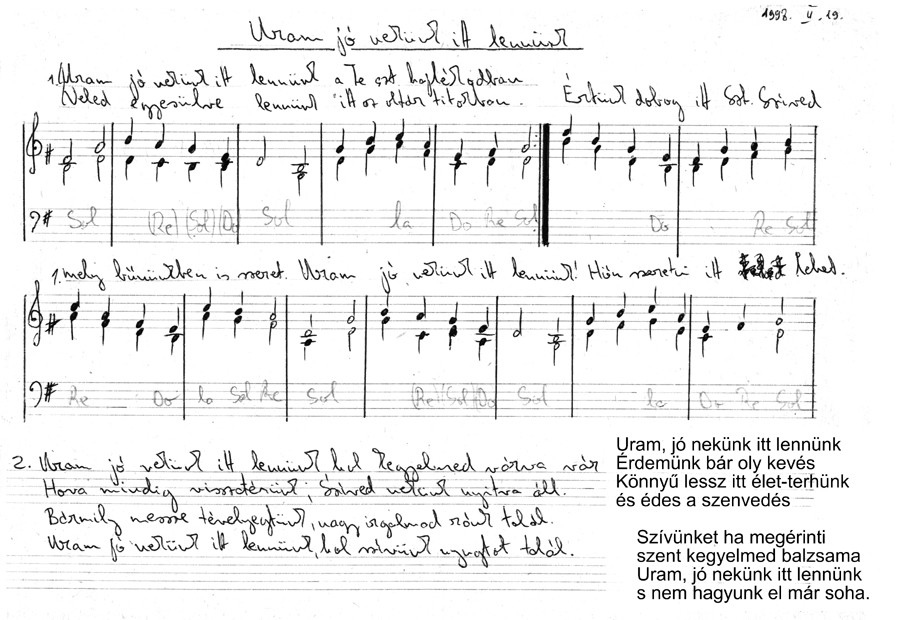 1998. II. 19.
Uram jó nekünk itt lennünk
1. Uram jó nekünk itt lennünk a Te szt hajlékodban
Veled egyesülve lennünk itt az oltár titokban. Értünk dobog itt Szt. Szíved
Sol (Re) (Sol) (Do Sol la Do Re Sol Do Re Sol
1. mely bűnünkben is szeret. Uram jó nekünk itt lennünk! Hőn szeretni itt lehet.
Re Do la Sol Re Sol (Re) (Sol) (Do Sol la Do Re Sol
2. Uram jó nekünk itt lennünk hol kegyelmed várva vár
Hova mindig visszatérünk, Szíved nekünk nyitva áll.
Bármily messze tévelyegtünk, nagy irgalmad ránk talál.
Uram jó nekünk itt lennünk, hol szívünk nyugtot talál.
Uram, jó nekünk itt lennünk
Érdemünk bár oly kevés
Könnyű lessz itt élet-terhünk
és édes a szenvedés
Szívünket ha megérinti
szent kegyelmed balzsama
Uram, jó nekünk itt lennünk
s nem hagyunk el már soha.